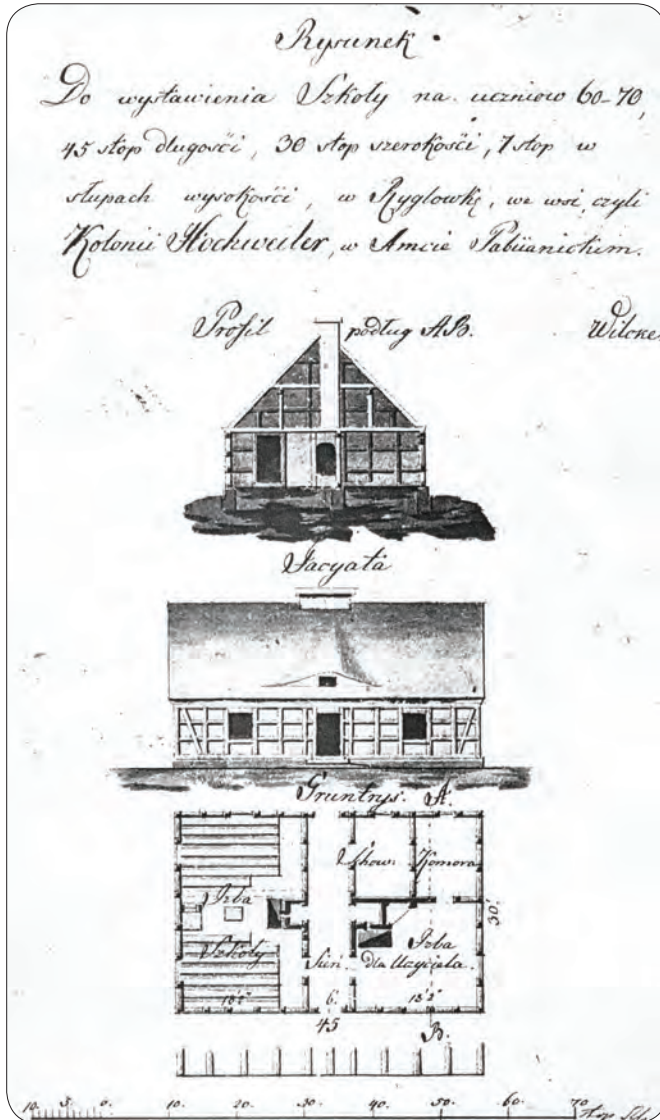 Rysunek
Do wystawienia Szkoły na uczniow 60-70,
45 stop długości, 30 stop szerokości, 7 stop w
słupach wysokości, w Ryglowkę, we wsi, czyli
Kolonii Hochweiler, w Amcie Pabiianickim.
Profil podług A.B. Wilcke
Facyata
Gruntrys. A.
Komora
Izba
30.
Szkoły
Sień.
Izba
dla Uczyciela.
6.
45
B.
10. 5. 0. 10. 20. 30. 40. 50. 60. 70